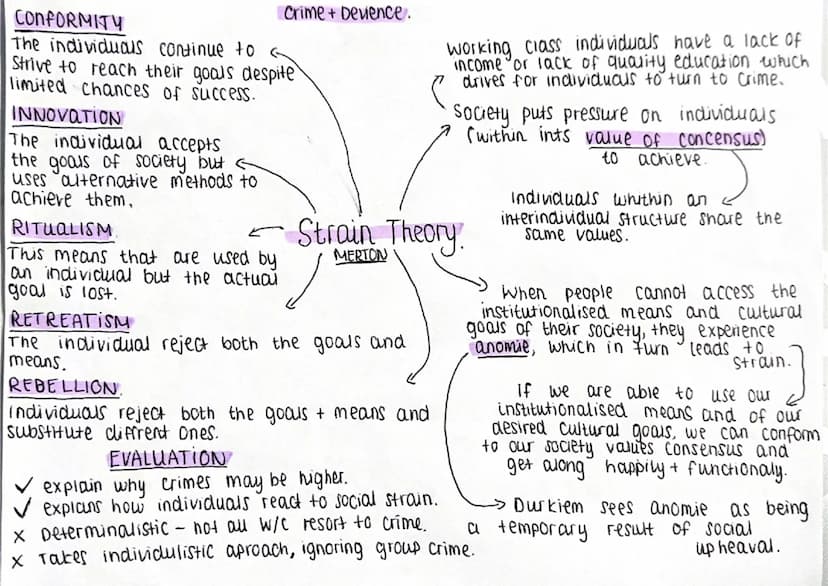 Crime + Devience.
CONFORMITY
The individuals continue to
strive to reach their goals despite
limited chances of success.
INNOVATION
The individual accepts
the goals of society but
uses alternative methods to
achieve them.
RITUALISM
This means that are used by
an individual but the actual
goal is lost.
RETREATISM
The individual reject both the goals and
means.
REBELLION.
Individuals reject both the goals + means and
substitute different ones.
EVALUATION
✓ explain why crimes may be higher.
✓ explans how individuals react to social strain.
x Determinalistic - not all W/C resort to crime.
x Takes individulistic aproach, ignoring group crime.
Strain Theory.
MERTON
Working class individuals have a lack of
income or lack of quality education which
drives for individuals to turn to crime.
Society puts pressure on individuals
(within ints value of concensus)
to achieve.
Individuals whithin an
interindividual structure share the
same values.
When people cannot access the
institutionalised means and cultural
goals of their society, they experience
anomie, which in turn leads to
strain.
If we are able to use our
institutionalised means and of our
desired cultural goals, we can conform
to our society values consensus and
get along happily + functionaly.
Durkiem sees anomie as being
a temporary result of social
upheaval.